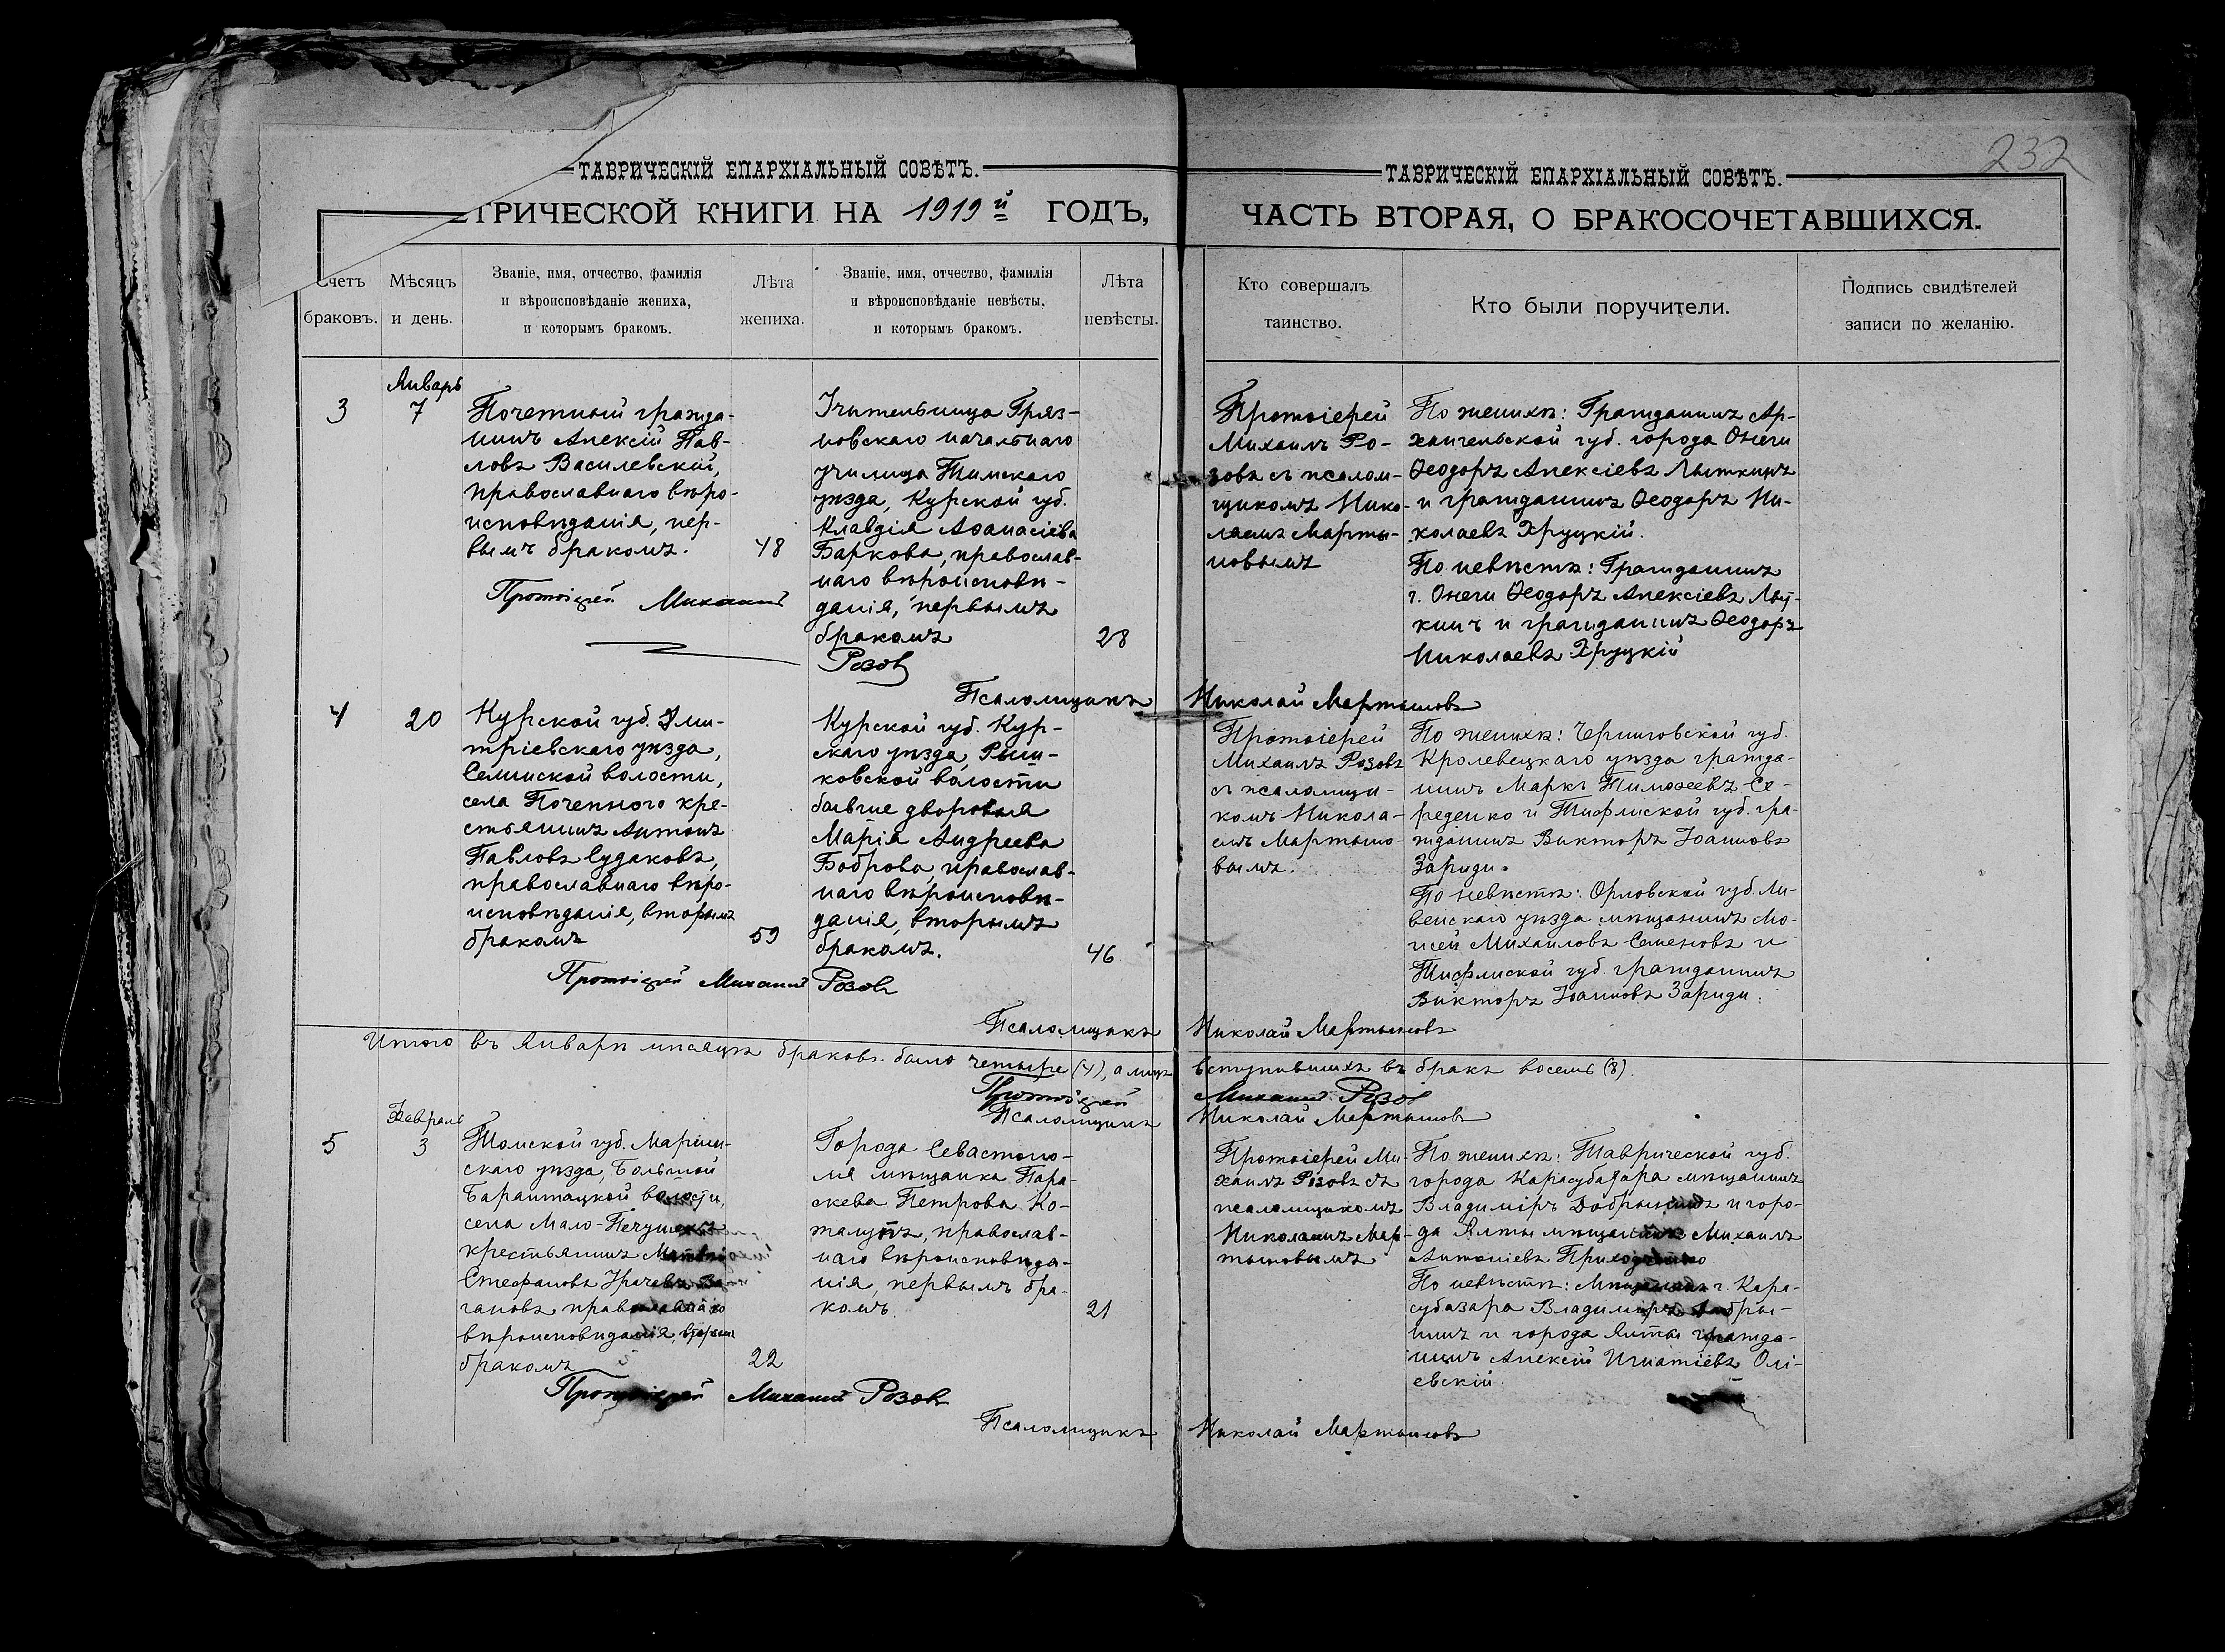 232
ТАВРИЧЕСКІЙ ЕПАРХІАЛЬНЫЙ СОВѢТЪ.
ТРИЧЕСКОЙ КНИГИ НА 1919й ГОДЪ,
Счетъ
браковъ.
Мѣсяцъ
и день.
Званіе, имя, отчество, фамилія
и вѣроисповѣданіе жениха,
и которымъ бракомъ.
Лѣта
жениха.
Званіе, имя, отчество, фамилія
и вѣроисповѣданіе невѣсты,
и которымъ бракомъ.
Лѣта
невѣсты.
ТАВРИЧЕСКІЙ ЕПАРХІАЛЬНЫЙ СОВѢТЪ.
ЧАСТЬ ВТОРАЯ, О БРАКОСОЧЕТАВШИХСЯ.
Кто совершалъ
таинство.
Кто были поручители.
Подпись свидѣтелей
записи по желанію.
3
Январь
7
Почетный гражда-
нинъ Алексій Пав-
ловъ Василевскій,
православнаго вѣро-
исповѣданія, пер-
вымъ бракомъ.
48
Учительница Гряз-
новскаго начальнаго
училища Тимскаго
уѣзда, Курской губ.
Клавдія Аѳанасіева
Баркова, православ-
наго вѣроисповѣ-
данія, первымъ
бракомъ
28
Протоіерей Михаилъ Розов
Протоіерей
Михаилъ Ро-
зовъ съ псалом-
щикомъ Нико-
лаемъ Марты-
новымъ
По женихѣ: Гражданинъ Ар-
хангельской губ. города Онеги
Ѳеодоръ Алексіевъ Лыткинъ
и гражданинъ Ѳеодоръ Ни-
колаевъ Хруцкій.
По невѣстѣ: Гражданинъ
г. Онеги Ѳеодоръ Алексіевъ Лыт-
кинъ и гражданинъ Ѳеодоръ
Николаевъ Хруцкій
Псаломщикъ Николай Мартыновъ
4
20
Курской губ. Дми-
тріевскаго уѣзда,
Селинской волости,
села Почепного кре-
стьянинъ Антонъ
Павловъ Судаковъ,
православнаго вѣро-
исповѣданія, вторымъ
бракомъ
59
Курской губ. Кур-
скаго уѣзда, Рыш-
ковской волости
бывшие дворовыя
Марія Андреева
Боброва, православ-
наго вѣроисповѣ-
данія, вторымъ
бракомъ.
46
Протоіерей Михаилъ Розов
Протоіерей
Михаилъ Розовъ
съ псаломщи-
комъ Никола-
емъ Мартыно-
вымъ.
По женихѣ: Черниговской губ.
Кролевецкаго уѣзда гражда-
нинъ Маркъ Тимоѳеевъ Се-
реденко и Тифлиской губ. гра-
жданинъ Викторъ Іоанновъ
Зариди.
По невѣстѣ: Орловской губ. Ли-
венскаго уѣзда мѣщанинъ Мо-
исей Михаиловъ Семеновъ и
Тифлиской губ. гражданинъ
Викторъ Іоанновъ Зариди.
Псаломщикъ Николай Мартыновъ
Итого въ Январѣ мѣсяцѣ браковъ было четыре (4), а лицъ вступившихъ въ бракъ восемь (8).
Протоіерей Михаилъ Розов
Псаломщикъ Николай Мартыновъ
5
Февраль
3
Томской губ. Маріин-
скаго уѣзда, Большой
Барантацкой волости,
села Мало-
крестьянинъ
Стефановъ
православнаго
вѣроисповѣданія, вторымъ
бракомъ
22
Города Севастопо-
ля мѣщанка Пара-
скева Петрова Ко-
православ-
наго вѣроисповѣда-
нія, первымъ бра-
комъ.
21
Протоіерей Михаилъ Розов
Протоіерей Ми-
хаилъ Розовъ съ
псаломщикомъ
Николаемъ Мар-
тыновымъ
По женихѣ: Таврической губ.
города Карасубазара мѣщанинъ
Владиміръ Добрынинъ и горо-
да Ялты мѣщанинъ Михаилъ
Антоніевъ Приходченко
По невѣстѣ: Мѣщанинъ г. Кара-
субазара Владиміръ Добры-
нинъ и города Ялты гражда-
нинъ Алексій Игнатіевъ Олі-
евскій.
Псаломщикъ Николай Мартыновъ